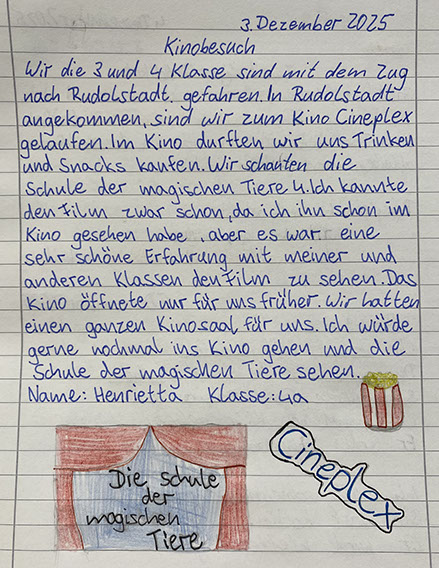 3. Dezember 2025
Kinobesuch
Wir die 3 und 4 Klasse sind mit dem Zug
nach Rudolstadt, gefahren. In Rudolstadt
angekommen, sind wir zum Kino Cineplex
gelaufen. Im Kino durften wir uns Trinken
und Snacks kaufen. Wir schauten die
Schule der magischen Tiere 4. Ich kannte
den Film zwar schon, da ich ihn schon im
Kino gesehen habe, aber es war eine
sehr schöne Erfahrung mit meiner und
anderen Klassen den Film zu sehen. Das
Kino öffnete nur für uns früher. Wir hatten
einen ganzen Kinosaal für uns. Ich würde
gerne nochmal ins Kino gehen und die
Schule der magischen Tiere sehen.
Name: Henrietta Klasse: 4a
Die schule
der
magischen
Tiere
Cineplex